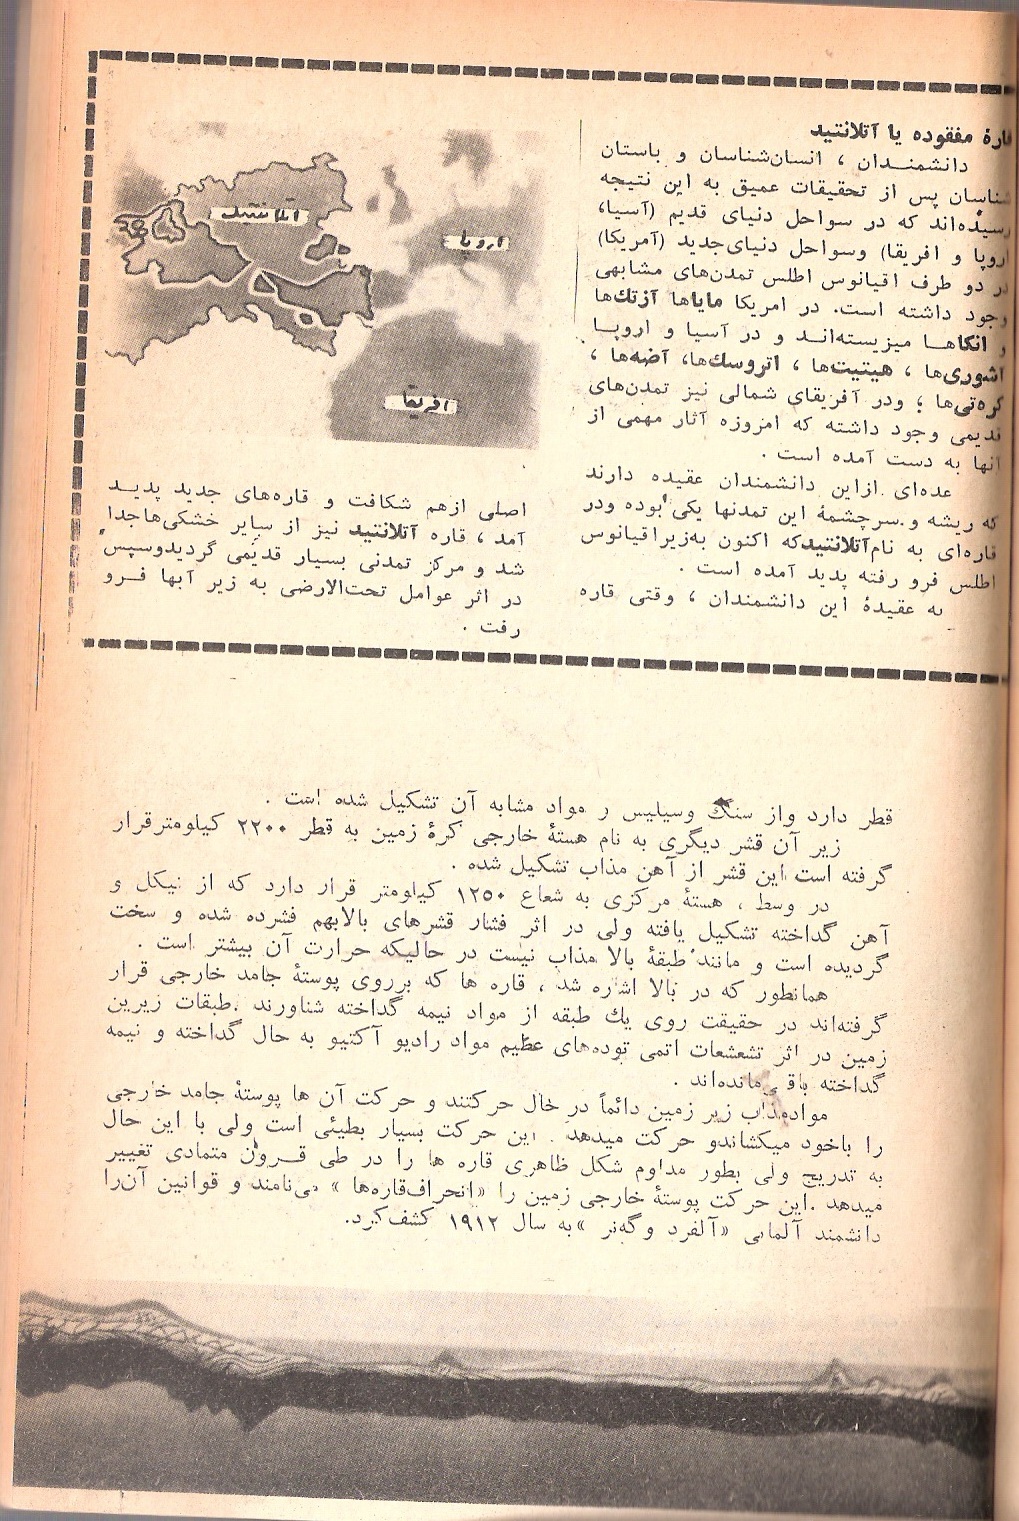 قارهٔ مفقوده یا آتلانتید
دانشمنـدان ، انسان‌شناسان و باستان
شناسان پس از تحقیقات عمیق به این نتیجه
رسیده‌اند که در سواحل دنیای قدیم (آسیا،
اروپا و افریقا) وسواحل دنیای‌جدید (آمریکا)
در دو طرف اقیانوس اطلس تمدن‌های مشابهی
وجود داشته است. در امریکا مایاها آزتك‌ها
و انکاهـا میزیسته‌انـد و در آسیا و اروپـا
آشوری‌ها ، هیتیت‌ها ، اتروسك‌ها، آضه‌ها ،
کره‌تی‌ها ؛ ودر آفریقای شمالی نیز تمدن‌های
قدیمی وجود داشته که امروزه آثار مهمی از
آنها به دست آمده است .
عده‌ای ازاین دانشمندان عقیده دارند
که ریشه و سرچشمهٔ این تمدنها یکی بوده ودر
قاره‌ای به نام‌آتلانتیدکه اکنون به‌زیراقیانوس
اطلس فرو رفته پدید آمده است .
به عقیدهٔ این دانشمندان ، وقتی قاره
آتلانتیك
اروپا
افریقا
اصلی ازهم شکافت و قاره‌های جدید پدیـد
آمد ، قاره آتلانتید نیز از سایر خشکی‌هاجدا
شد و مرکز تمدنی بسیار قدیمی گردیدوسپس
در اثر عوامل تحت‌الارضی به زیر آبها فـرو
رفت .
قطر دارد واز سنگ وسیلیس و مواد مشابه آن تشکیل شده است .
زیر آن قشر دیگری به نام هستهٔ خارجی کرهٔ زمین به قطر ۲۲۰۰ کیلومترقرار
گرفته است این قشر از آهن مذاب تشکیل شده .
در وسط ، هستهٔ مرکزی به شعاع ۱۲۵۰ کیلومتر قرار دارد که از نیکل و
آهن گداخته تشکیل یافته ولی در اثر فشار قشرهای بالابهم فشرده شده و سخت
گردیده است و مانند طبقهٔ بالا مذاب نیست در حالیکه حرارت آن بیشتر است .
همانطور که در بالا اشاره شد ، قاره ها که برروی پوستهٔ جامد خارجی قرار
گرفته‌اند در حقیقت روی یك طبقه از مواد نیمه گداخته شناورند .طبقات زیرین
زمین در اثر تشعشعات اتمی توده‌های عظیم مواد رادیو آکتیو به حال گداخته و نیمه
گداخته باقی‌مانده‌اند .
موادمذاب زیر زمین دائماً در حال حرکتند و حرکت آن ها پوستهٔ جامد خارجی
را باخود میکشاندو حرکت میدهد . این حرکت بسیار بطیئی است ولی با این حال
به تدریج ولی بطور مداوم شکل ظاهری قاره ها را در طی قـرون متمادی تغییر
میدهد .این حرکت پوستهٔ خارجی زمین را «انحراف‌قاره‌ها » می‌نامند و قوانین آن‌را
دانشمند آلمانی «آلفرد وگه‌نر »به سال ۱۹۱۲ کشف‌کرد.